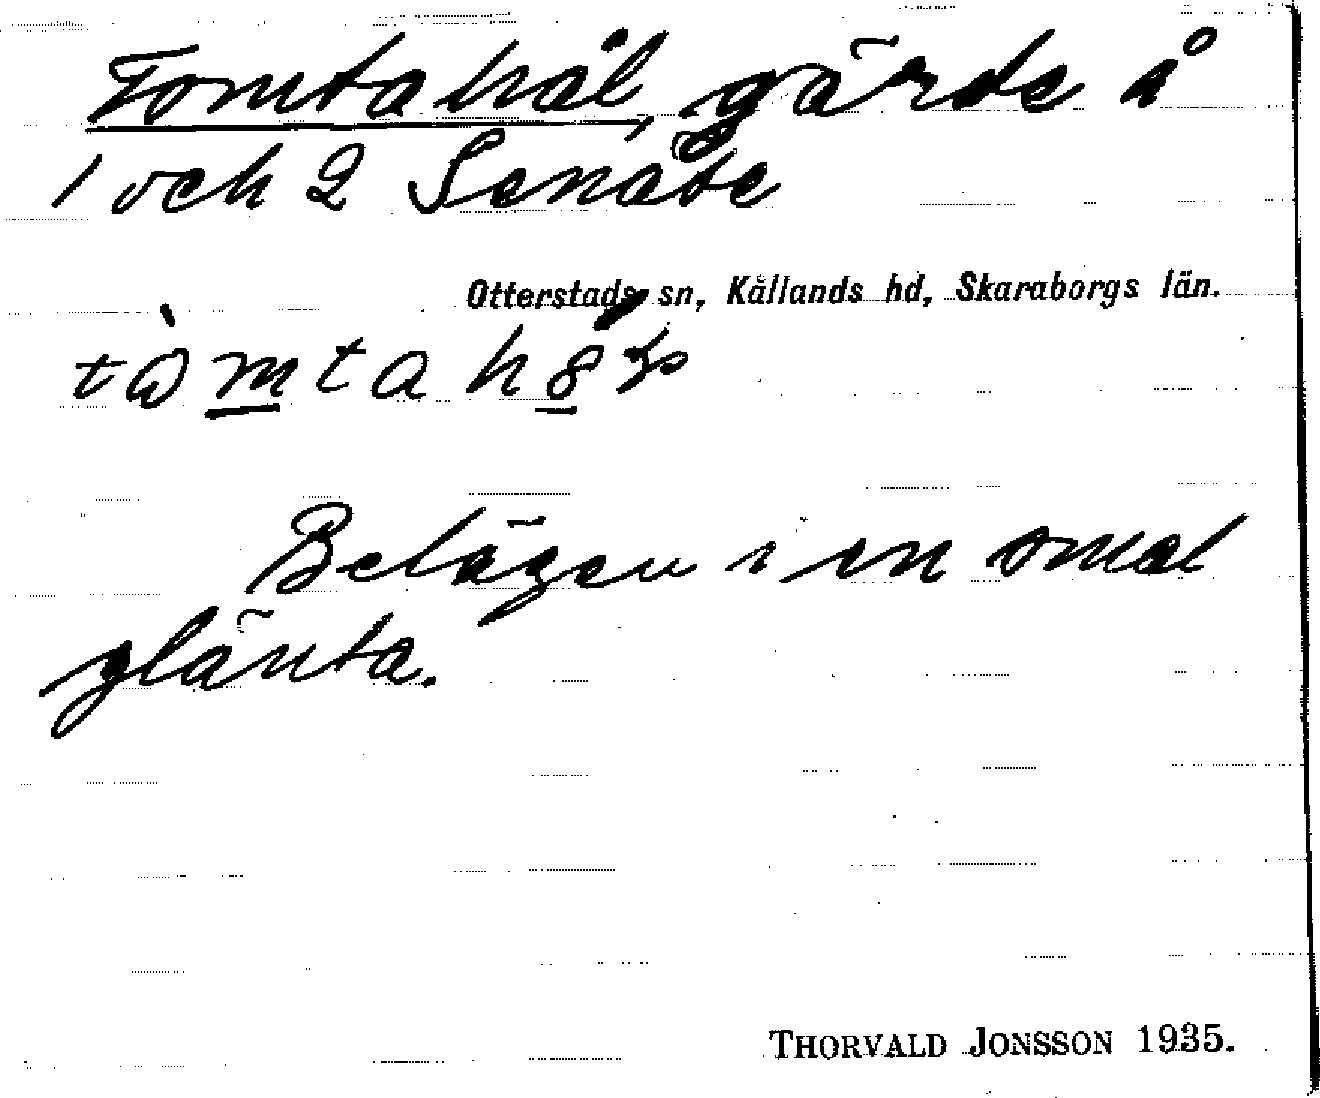 Tomtahål, gärde å
1 och 2 Senäte
Otterstads sn, Kållands hd, Skaraborgs län.
Belägen i en smal
glänta.
THORVALD JONSSON 1935.